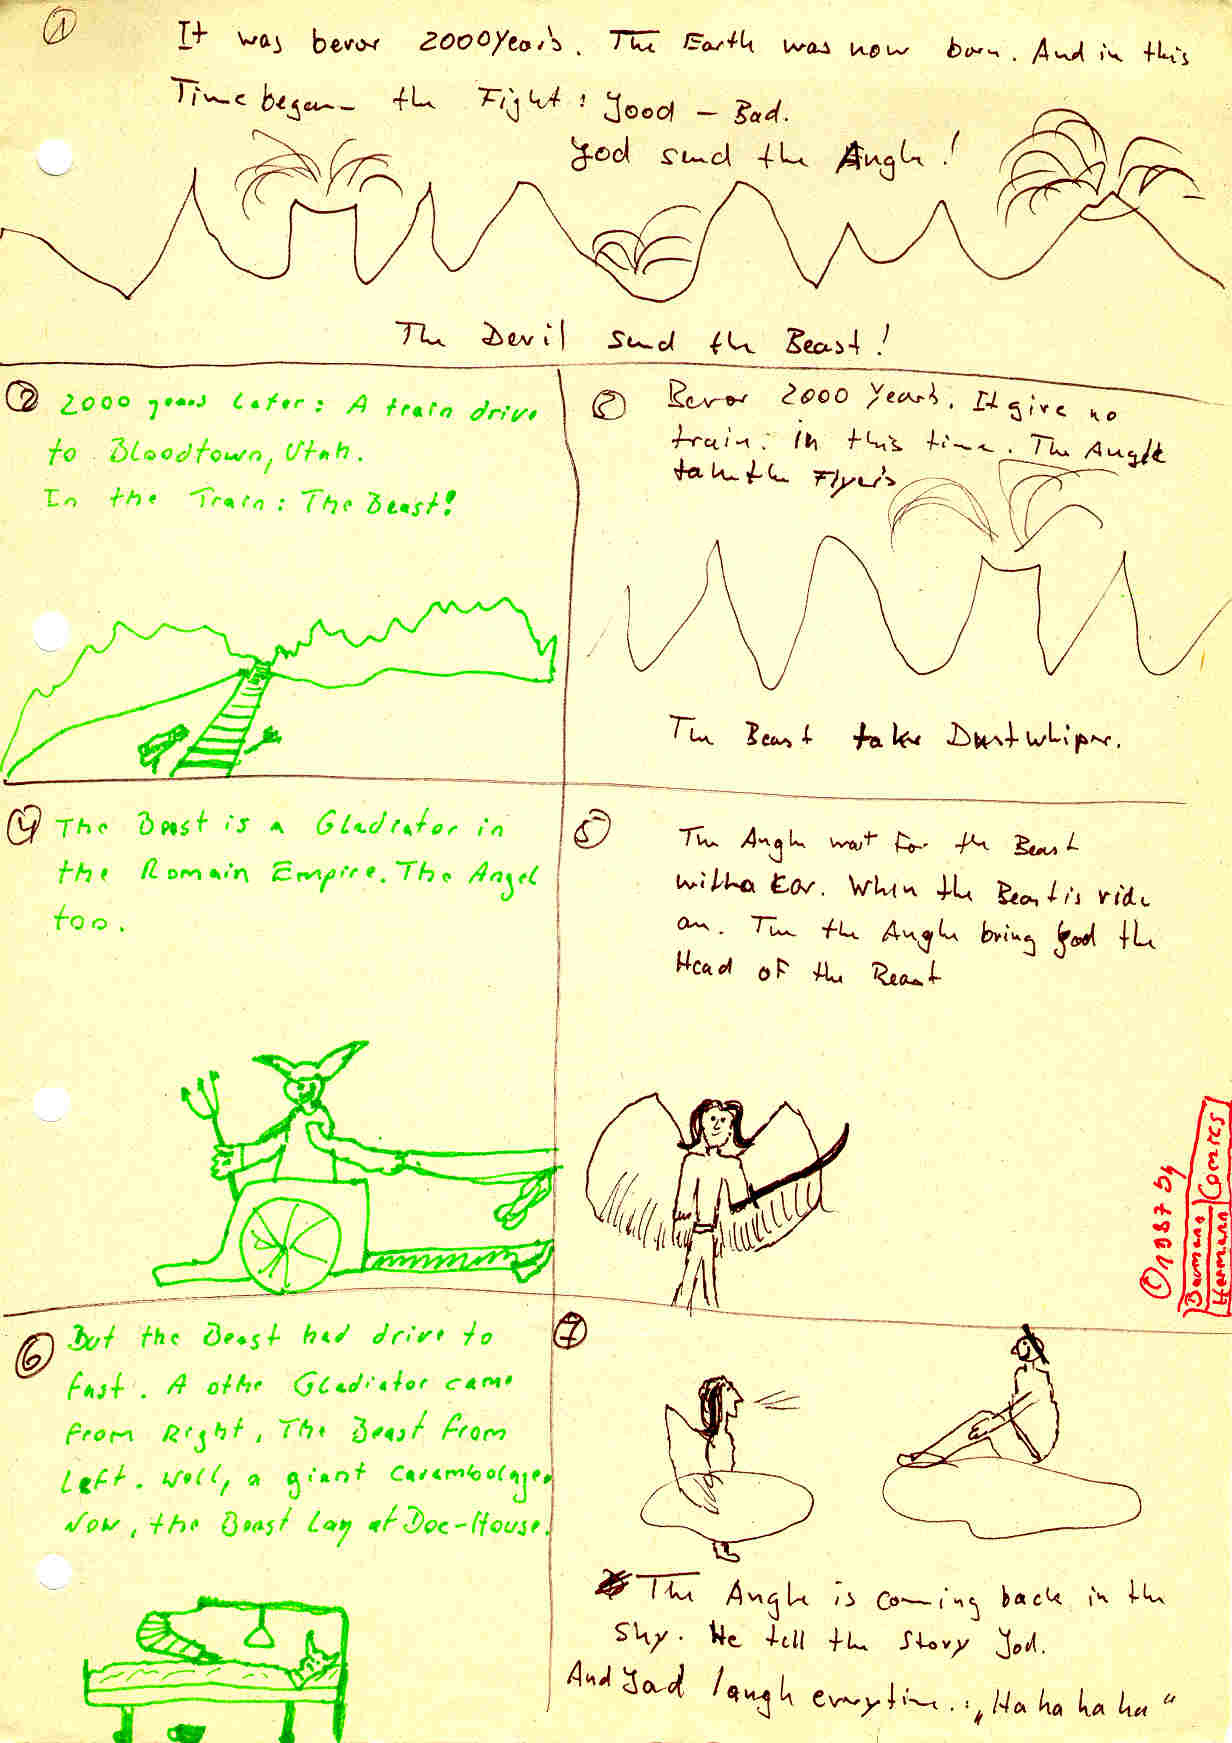 1
It was bevor 2000 Years. The Earth was now born. And in this
Time began the Fight: Good - Bad.
God send the Angle!
The Devil send the Beast!
2
2000 years later: A train drive
to Bloodtown, Utah.
In the Train: The Beast!
Bevor 2000 Years. It give no
train in this time. The Angle
take the Flyers
The Beast take Dustwhiper.
4
The Beast is a Gladiator in
the Romain Empire. The Angel
too.
5
The Angle wait for the Beast
with a Ear. When the Beast is ride
an. The the Angle bring God the
Head of the Beast
6
But the Beast had drive to
fast. A othe Gladiator came
from Right, The Beast from
Left. Well, a giant Carambolage
Now, the Beast Lay at Doc-House.
7
The Angle is coming back in the
Sky. He tell the Story God.
And God laugh everytime.: „Ha ha ha ha"
© 1987 by
Baumann
Hermann
Comics